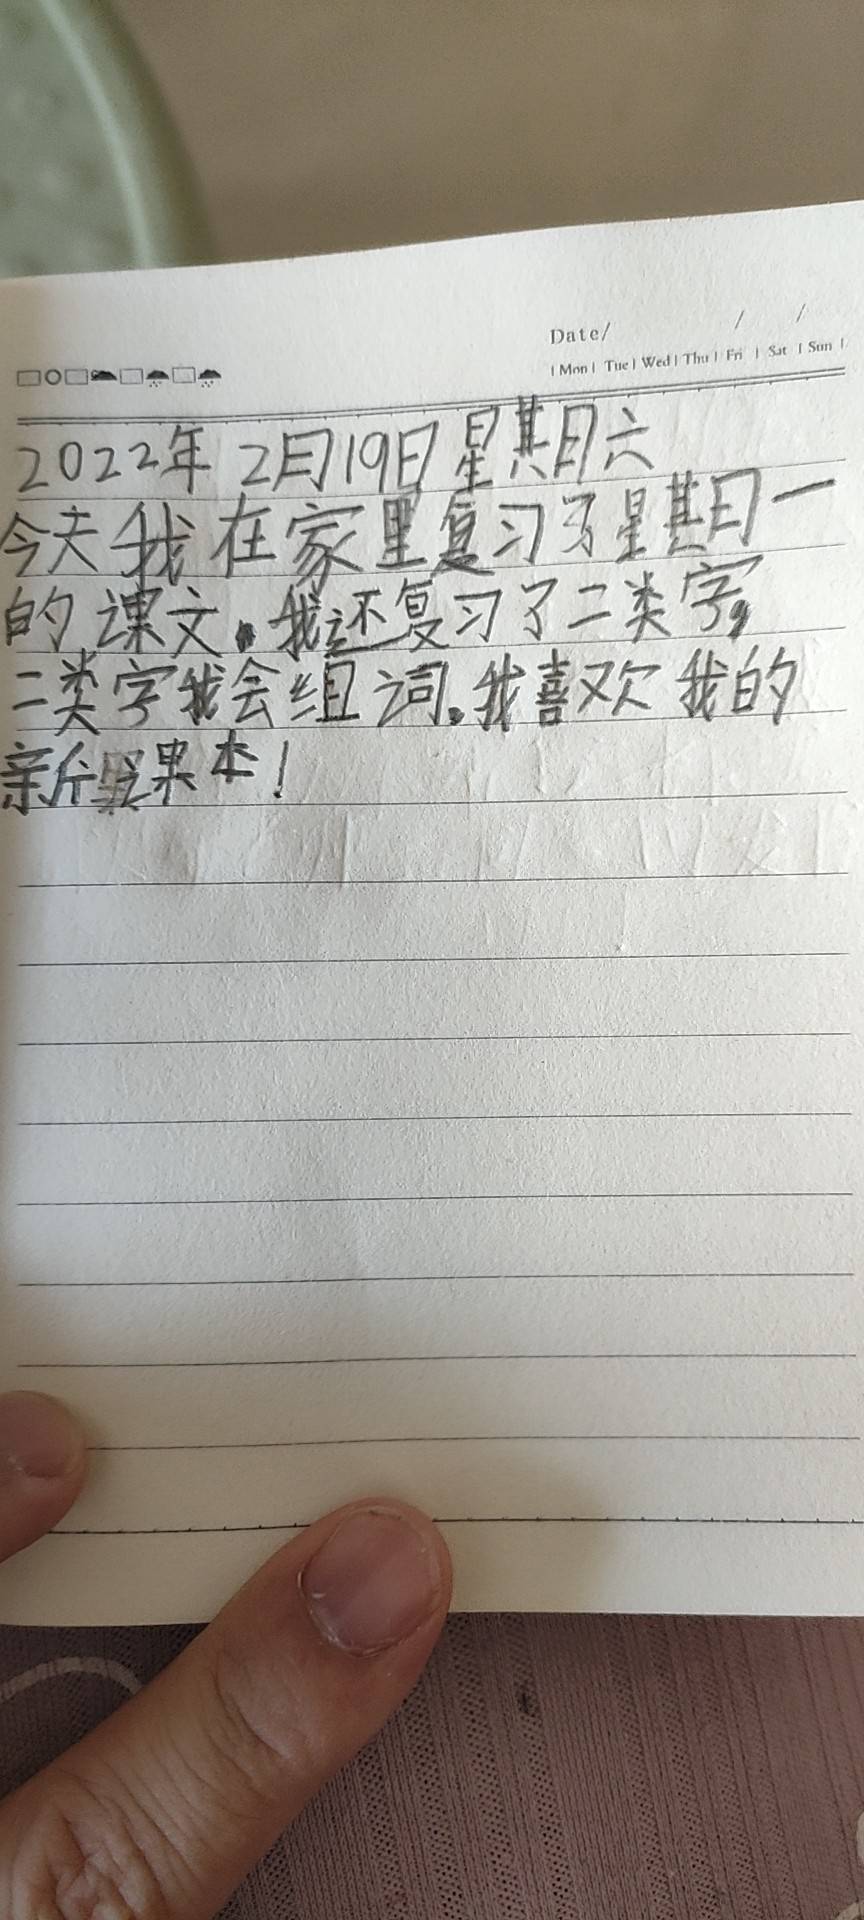 Date/ / /
| Mon | Tue | Wed | Thu | Fri | Sat | Sun |
2022年2月19日星期六
今天我在家里复习了星期一
的课文.我还复习了二类字,
二类字我会组词.我喜欢我的
新课本!